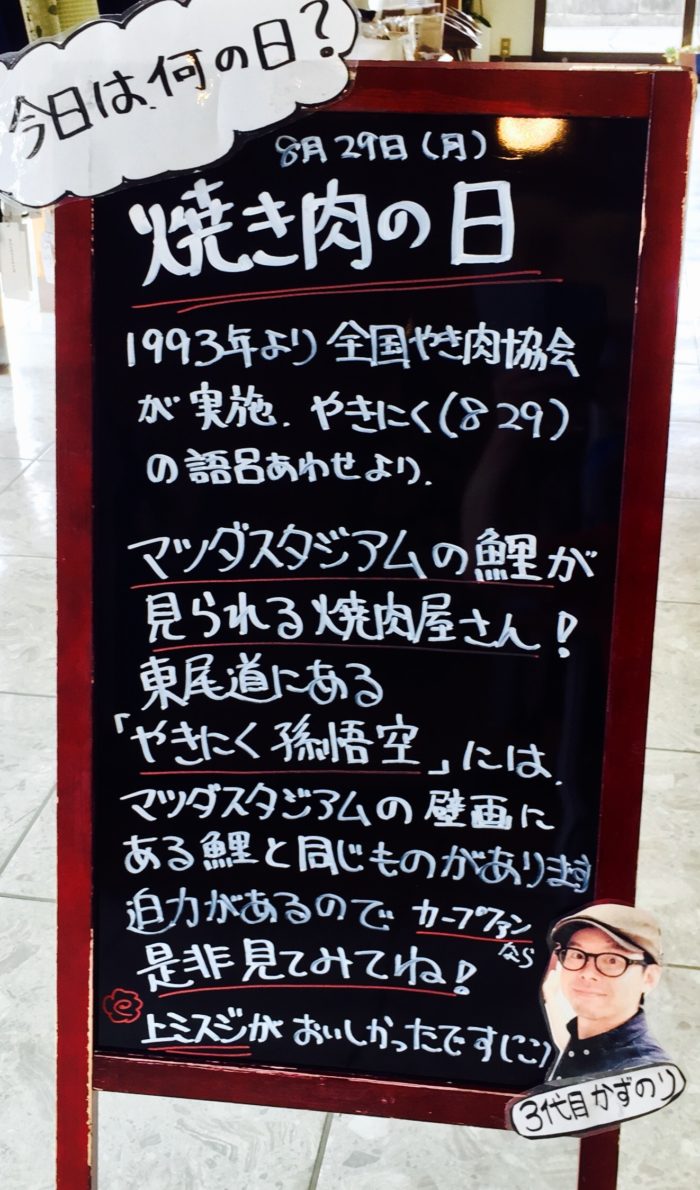 今日は何の日?
8月29日(月)
焼き肉の日
1993年より全国やき肉協会
が実施.やきにく(829)
の語呂あわせより.
マツダスタジアムの鯉が
見られる焼肉屋さん!
東尾道にある
「やきにく孫悟空」には、
マツダスタジアムの壁画に
ある鯉と同じものがあります
迫力があるのでカープファン
なら
是非見てみてね!
上ミスジがおいしかったです(ニコ)
3代目かずのり